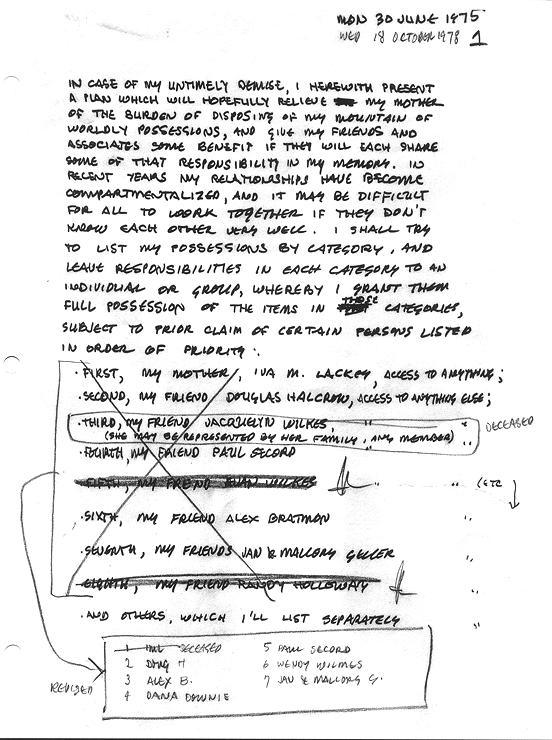 MON 30 JUNE 1975
WED 18 OCTOBER 1978 1
IN CASE OF MY UNTIMELY DEMISE, I HEREWITH PRESENT
A PLAN WHICH WILL HOPEFULLY RELIEVE MY MOTHER
OF THE BURDEN OF DISPOSING OF MY MOUNTAIN OF
WORLDLY POSSESSIONS, AND GIVE MY FRIENDS AND
ASSOCIATES SOME BENEFIT IF THEY WILL EACH SHARE
SOME OF THAT RESPONSIBILITY IN MY MEMORY. IN
RECENT YEARS MY RELATIONSHIPS HAVE BECOME
COMPARTMENTALIZED, AND IT MAY BE DIFFICULT
FOR ALL TO WORK TOGETHER IF THEY DON'T
KNOW EACH OTHER VERY WELL. I SHALL TRY
TO LIST MY POSSESSIONS BY CATEGORY, AND
LEAVE RESPONSIBILITIES IN EACH CATEGORY TO AN
INDIVIDUAL OR GROUP, WHEREBY I GRANT THEM
FULL POSSESSION OF THE ITEMS IN THOSE CATEGORIES,
SUBJECT TO PRIOR CLAIM OF CERTAIN PERSONS LISTED
IN ORDER OF PRIORITY:
· FIRST, MY MOTHER, IVA M. LACKEY, ACCESS TO ANYTHING;
· SECOND, MY FRIEND DOUGLAS HALCROW, ACCESS TO ANYTHING ELSE;
· THIRD, MY FRIEND JACQUELYN WILKES, " "
(SHE MAY BE REPRESENTED BY HER FAMILY, ANY MEMBER) " DECEASED
· FOURTH, MY FRIEND PAUL SECORD
· FIFTH, MY FRIEND WILKES " " (ETC
· SIXTH, MY FRIEND ALEX BRATMON "
· SEVENTH, MY FRIENDS JAN & MALLORY GELLER "
· EIGHTH, MY FRIEND RANDY HOLLOWAY "
· AND OTHERS, WHICH I'LL LIST SEPARATELY "
1 IML DECEASED 5 PAUL SECORD
2 DOUG H 6 WENDY WILKES
3 ALEX B. 7 JAN & MALLORY G.
4 DANA DOWNIE
REVISED